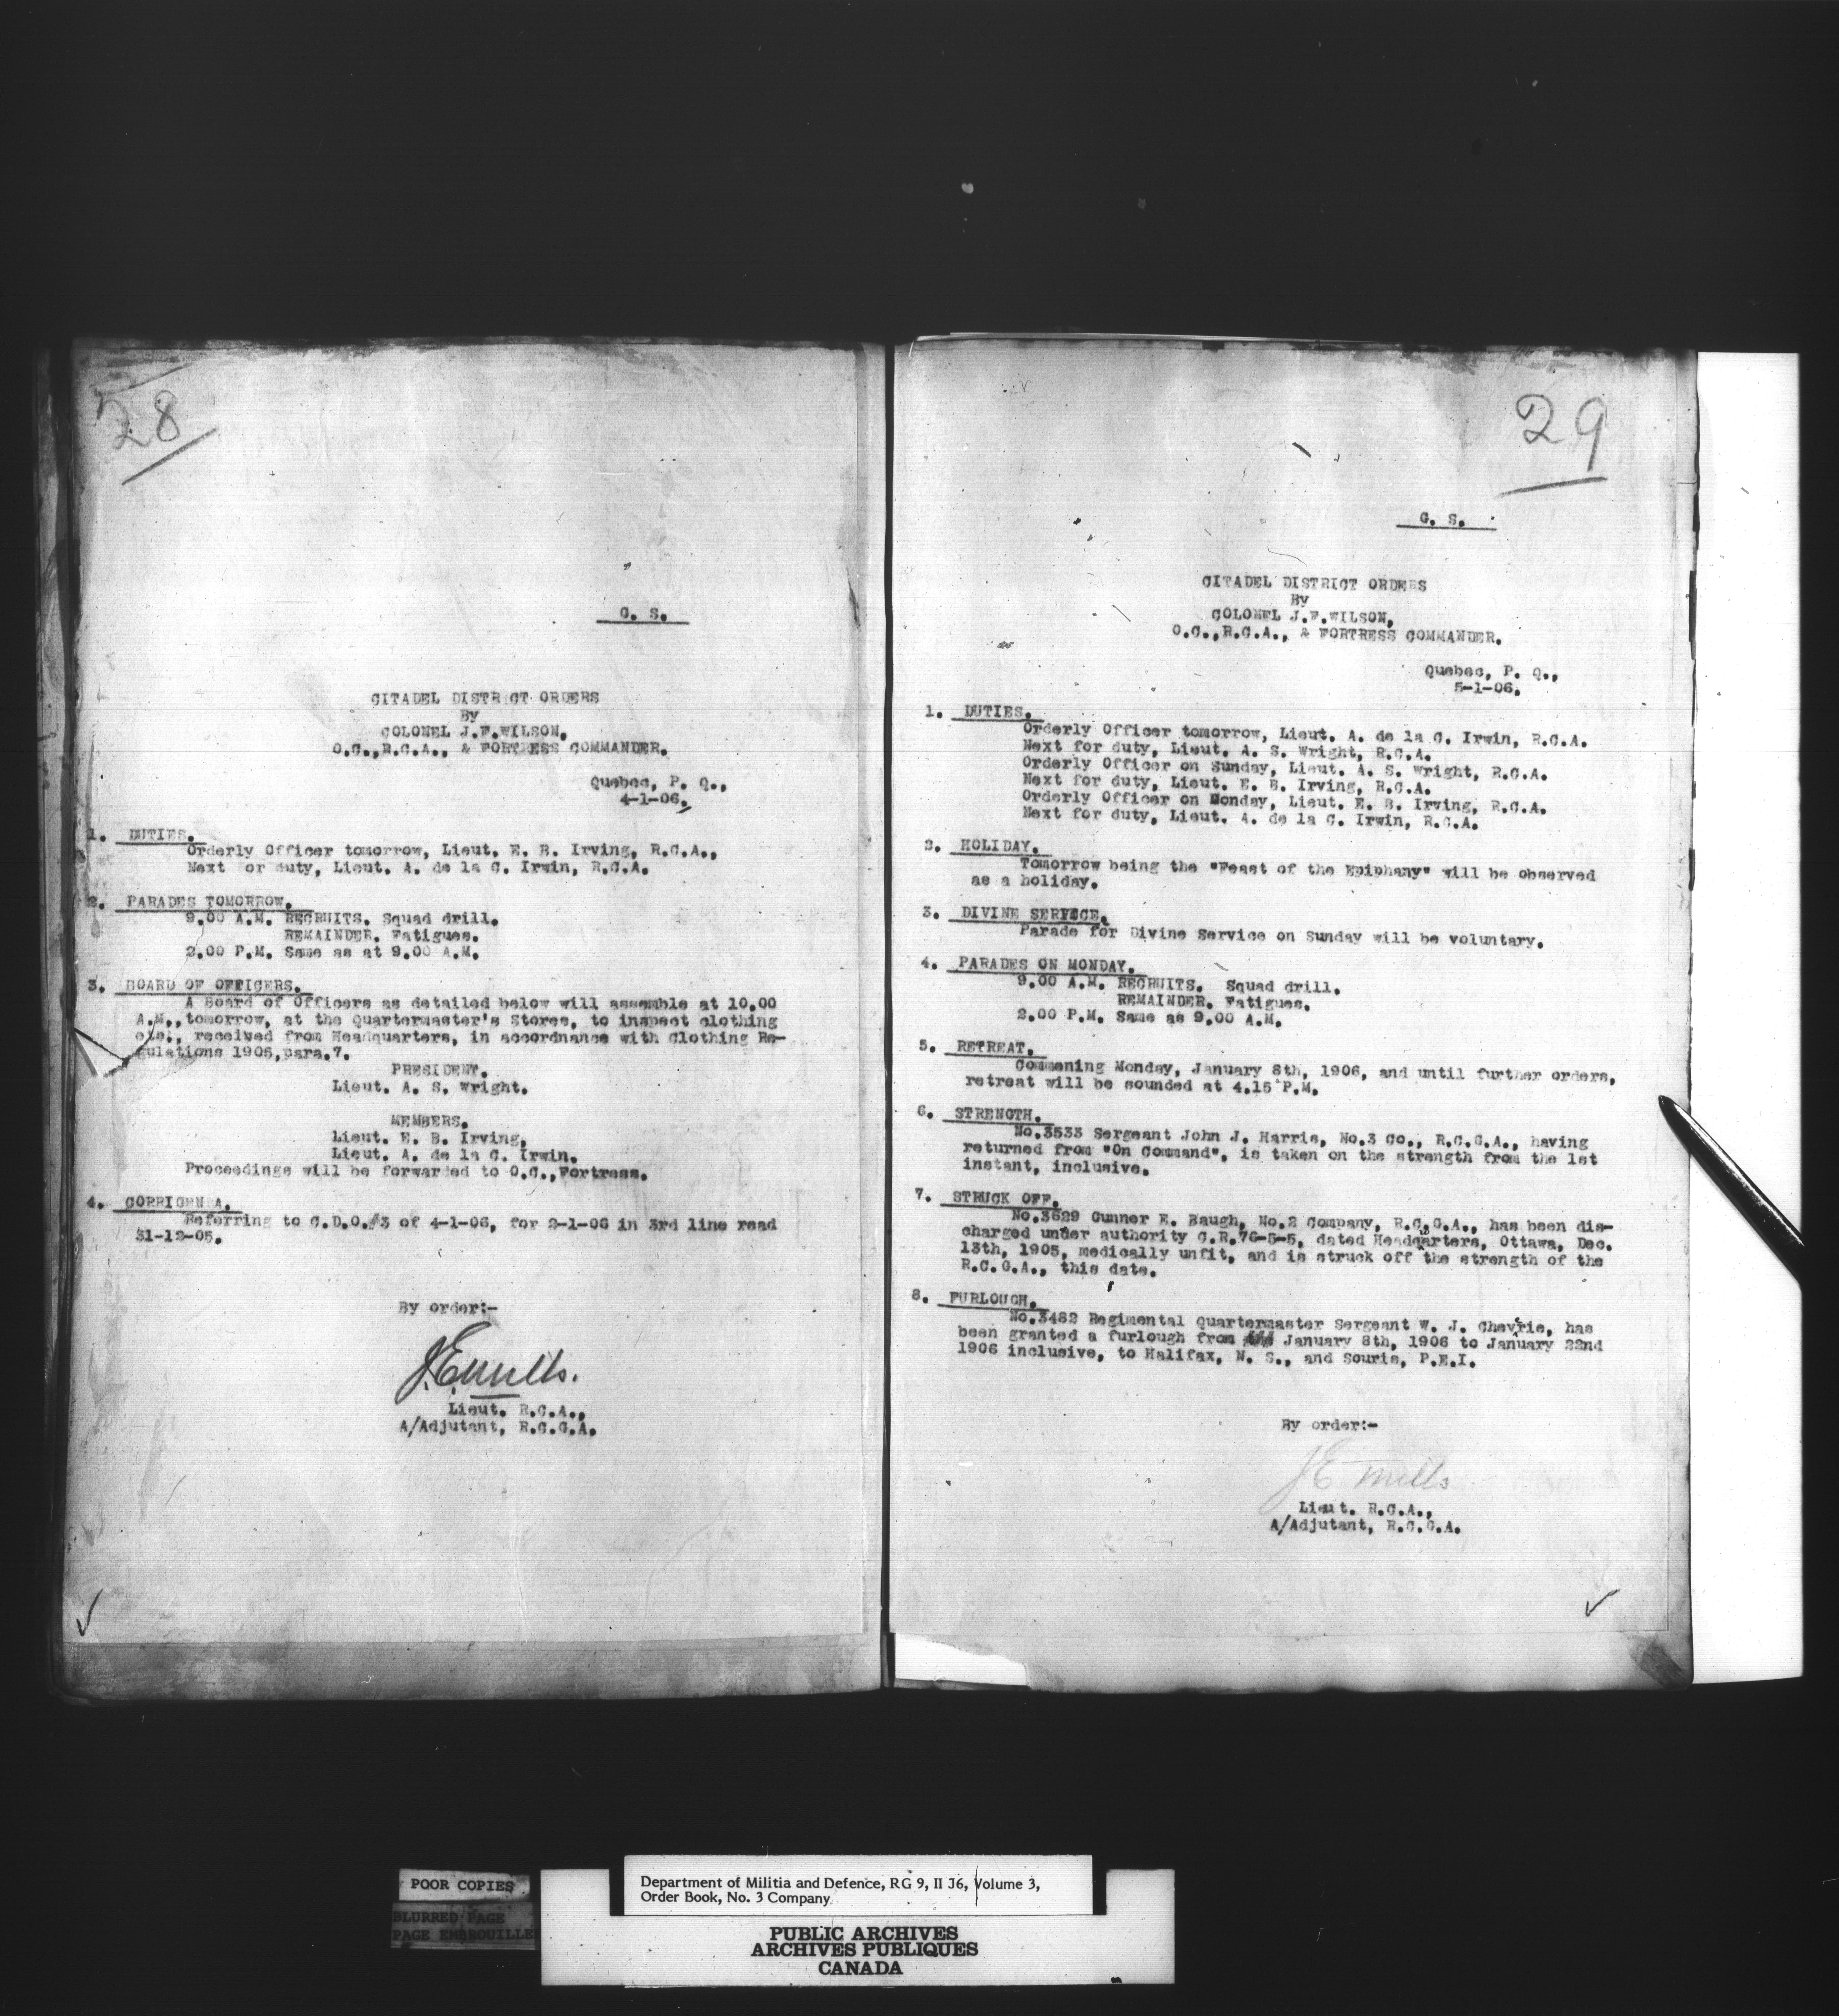 28
G. S.
CITADEL DISTRICT ORDERS
By
COLONEL J.F.WILSON,
O.C.,R.C.A., & FORTRESS COMMANDER.
Quebec, P. Q.,
4-1-06.
1. DUTIES.
Orderly Officer tomorrow, Lieut. E. B. Irving, R.C.A.,
Next for duty, Lieut. A. de la C. Irwin, R.C.A.
2. PARADES TOMORROW.
9.00 A.M. RECRUITS. Squad drill.
REMAINDER. Fatigues.
2.00 P.M. Same as at 9.00 A.M.
3. BOARD OF OFFICERS.
A Board of Officers as detailed below will assemble at 10.00
A.M., tomorrow, at the Quartermaster's Stores, to inspect clothing
etc., received from Headquarters, in accordnance with Clothing Re-
gulations 1905,para.7.
PRESIDENT.
Lieut. A. S. Wright.
MEMBERS.
Lieut. E. B. Irving,
Lieut. A. de la C. Irwin.
Proceedings will be forwarded to O.C.,Fortress.
4. CORRIGENDA.
Referring to C.D.O.#3 of 4-1-06, for 2-1-06 in 3rd line read
31-12-05.
By order:-
J.E.Mills.
Lieut. R.C.A.,
A/Adjutant, R.C.G.A.
29
G. S.
CITADEL DISTRICT ORDERS
By
COLONEL J.F.WILSON,
O.C.,R.C.A., & FORTRESS COMMANDER.
Quebec, P. Q.,
5-1-06.
1. DUTIES.
Orderly Officer tomorrow, Lieut. A. de la C. Irwin, R.C.A.
Next for duty, Lieut. A. S. Wright, R.C.A.
Orderly Officer on Sunday, Lieut. A. S. Wright, R.C.A.
Next for duty, Lieut. E. B. Irving, R.C.A.
Orderly Officer on Monday, Lieut. E. B. Irving, R.C.A.
Next for duty, Lieut. A. de la C. Irwin, R.C.A.
2. HOLIDAY.
Tomorrow being the "Feast of the Epiphany" will be observed
as a holiday.
3. DIVINE SERVICE.
Parade for Divine Service on Sunday will be voluntary.
4. PARADES ON MONDAY.
9.00 A.M. RECRUITS. Squad drill.
REMAINDER. Fatigues.
2.00 P.M. Same as 9.00 A.M.
5. RETREAT.
Commening Monday, January 8th, 1906, and until further orders,
retreat will be sounded at 4.15 P.M.
6. STRENGTH.
No.3533 Sergeant John J. Harris, No.3 Co., R.C.G.A., having
returned from "On Command", is taken on the strength from the 1st
instant, inclusive.
7. STRUCK OFF.
No.3629 Gunner E. Baugh, No.2 Company, R.C.G.A., has been dis-
charged under authority C.R.76-5-5, dated Headquarters, Ottawa, Dec.
13th, 1905, medically unfit, and is struck off the strength of the
R.C.G.A., this date.
8. FURLOUGH.
No.3482 Regimental Quartermaster Sergeant W. J. Chevrie, has
been granted a furlough from January 8th, 1906 to January 22nd
1906 inclusive, to Halifax, N. S., and Souris, P.E.I.
By order:-
J E Mills
Lieut. R.C.A.,
A/Adjutant, R.C.G.A.
POOR COPIES
BLURRED PAGE
PAGE EMBROUILLE
Department of Militia and Defence, RG 9, II J6, Volume 3,
Order Book, No. 3 Company
PUBLIC ARCHIVES
ARCHIVES PUBLIQUES
CANADA